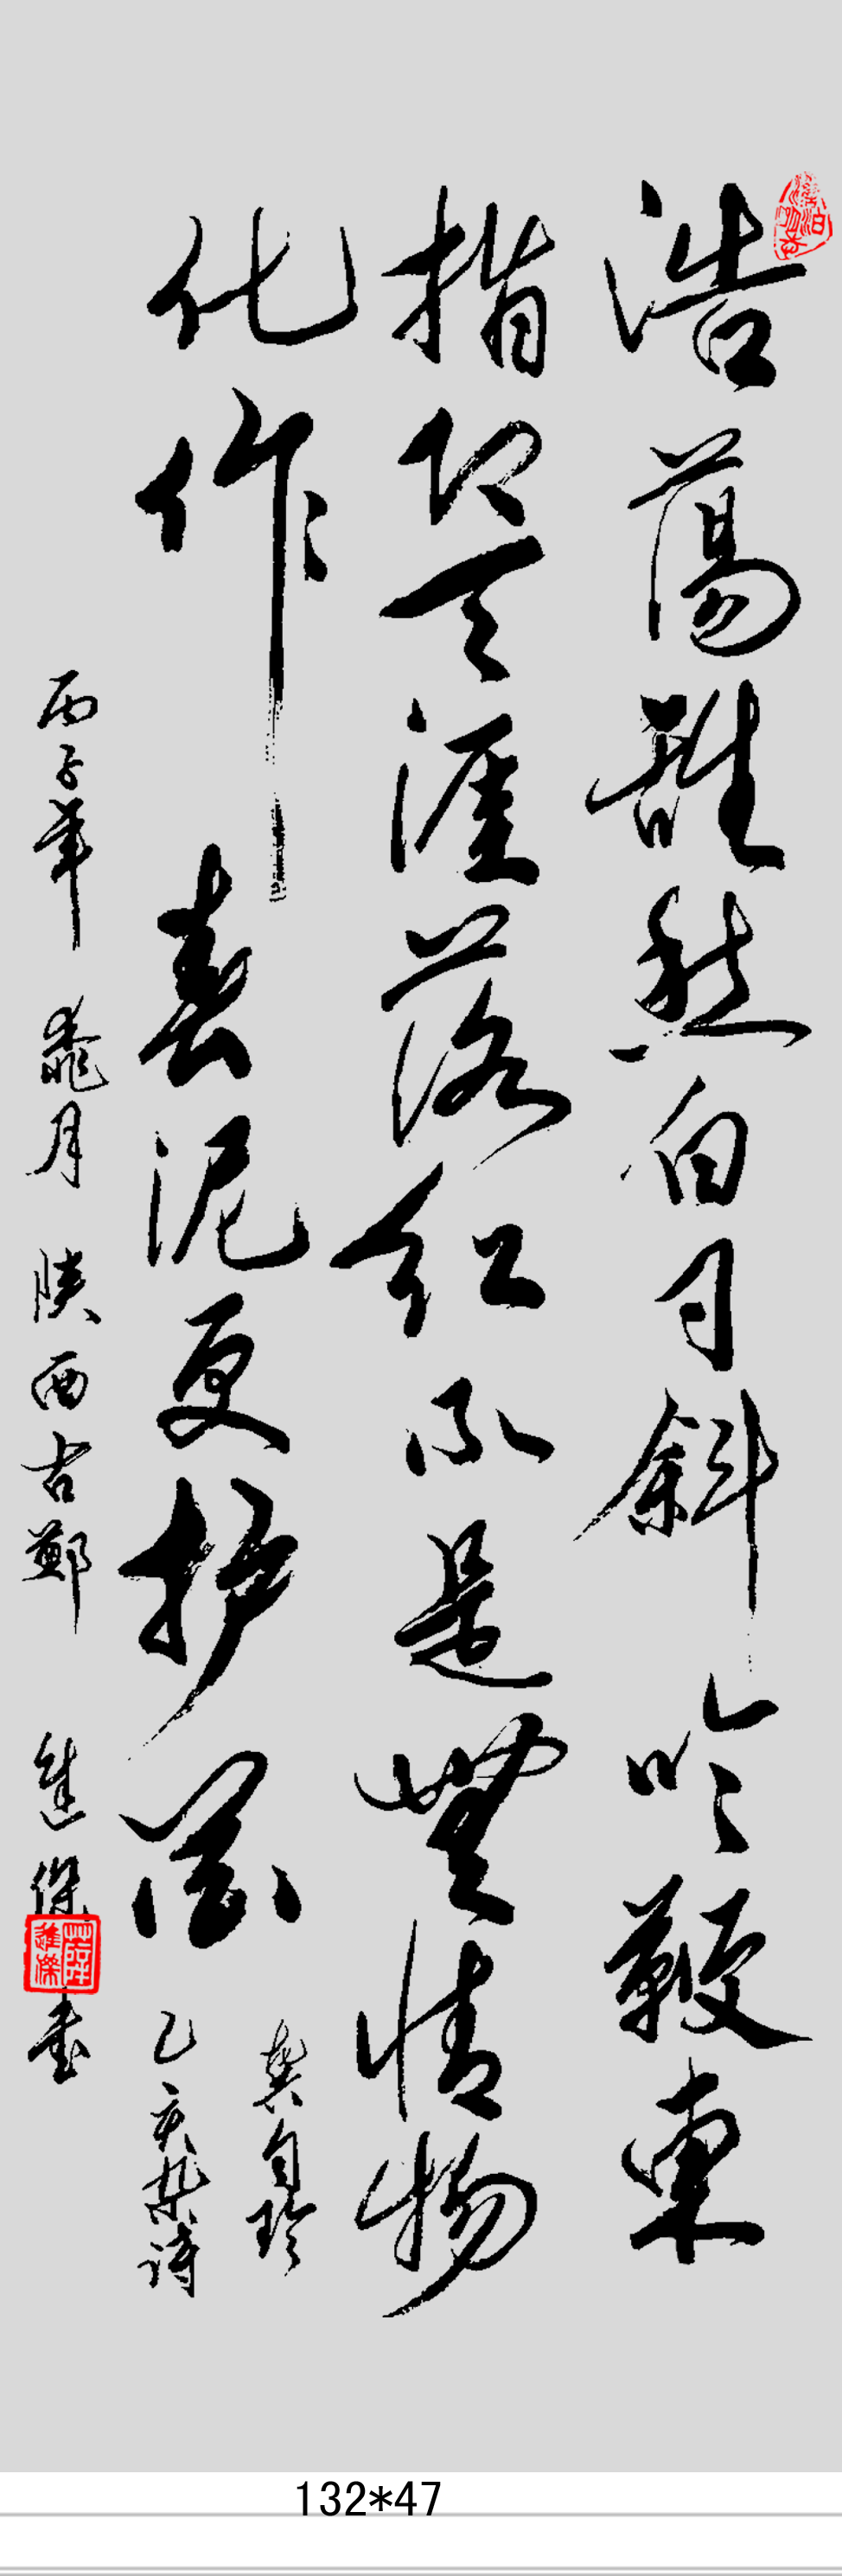 浩蕩離愁白日斜吟鞭東
指即天涯落红不是無情物
化作春泥更护花
龚自珍
乙亥杂诗
丙子年 月陕西古鄭 進傑书
132*47